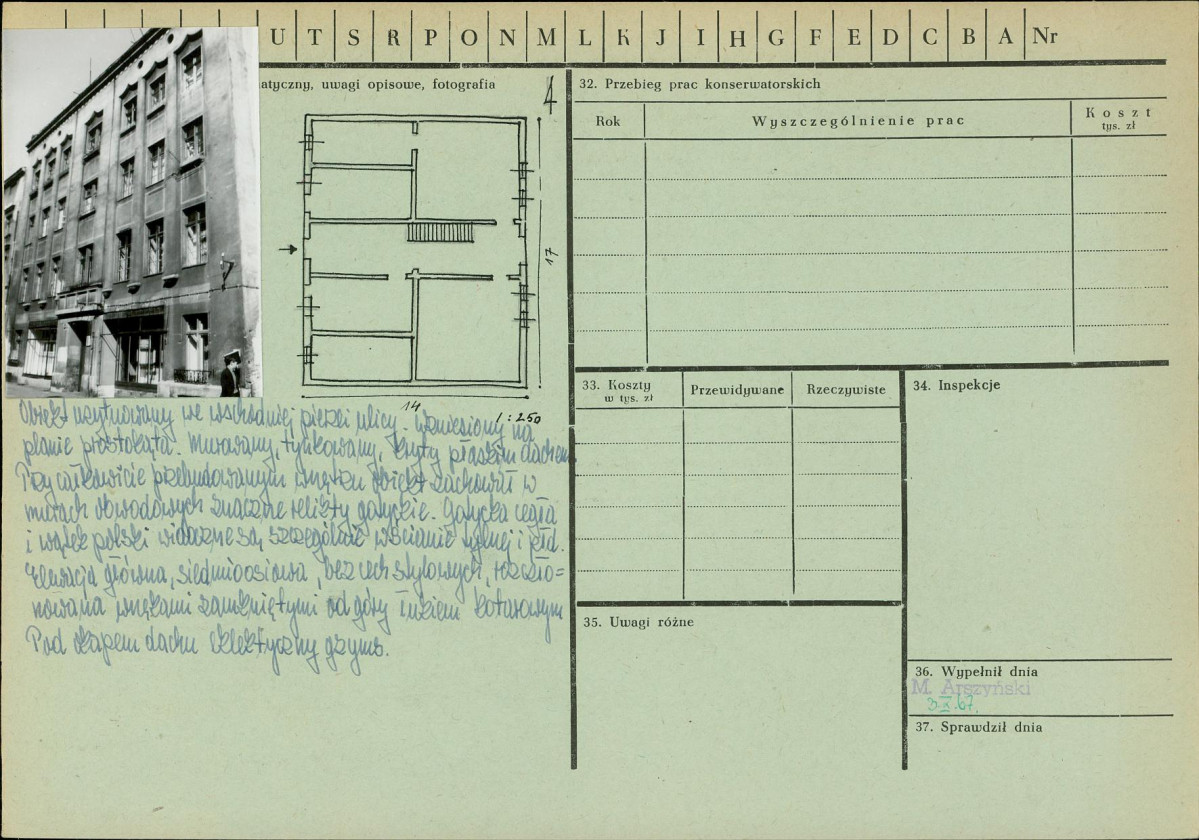 U T S R P O N M L K J I H G F E D C B A Nr
atyczny, uwagi opisowe, fotografia
17
14
1:250
Obiekt usytuowany we wschodniej pierzei ulicy. Wzniesiony na
planie prostokąta. Murowany, tynkowany, kryty płaskim dachem.
Przy całkowicie przebudowanym wnętrzu obiekt zachował w
murach obwodowych znaczne relikty gotyckie. Gotycka cegła
i wątek polski widoczne są szczególnie w ścianie tylnej i płd.
Elewacja główna, siedmioosiowa, bez cech stylowych, rozczło=
nowana wnękami zamkniętymi od góry łukiem kotarowym
Pod okapem dachu eklektyczny gzyms.
32. Przebieg prac konserwatorskich
Rok Wyszczególnienie prac Koszt
tys. zł
33. Koszty Przewidywane Rzeczywiste
w tys. zł
34. Inspekcje
35. Uwagi różne
36. Wypełnił dnia
M. Arszyński
3.X.67.
37. Sprawdził dnia